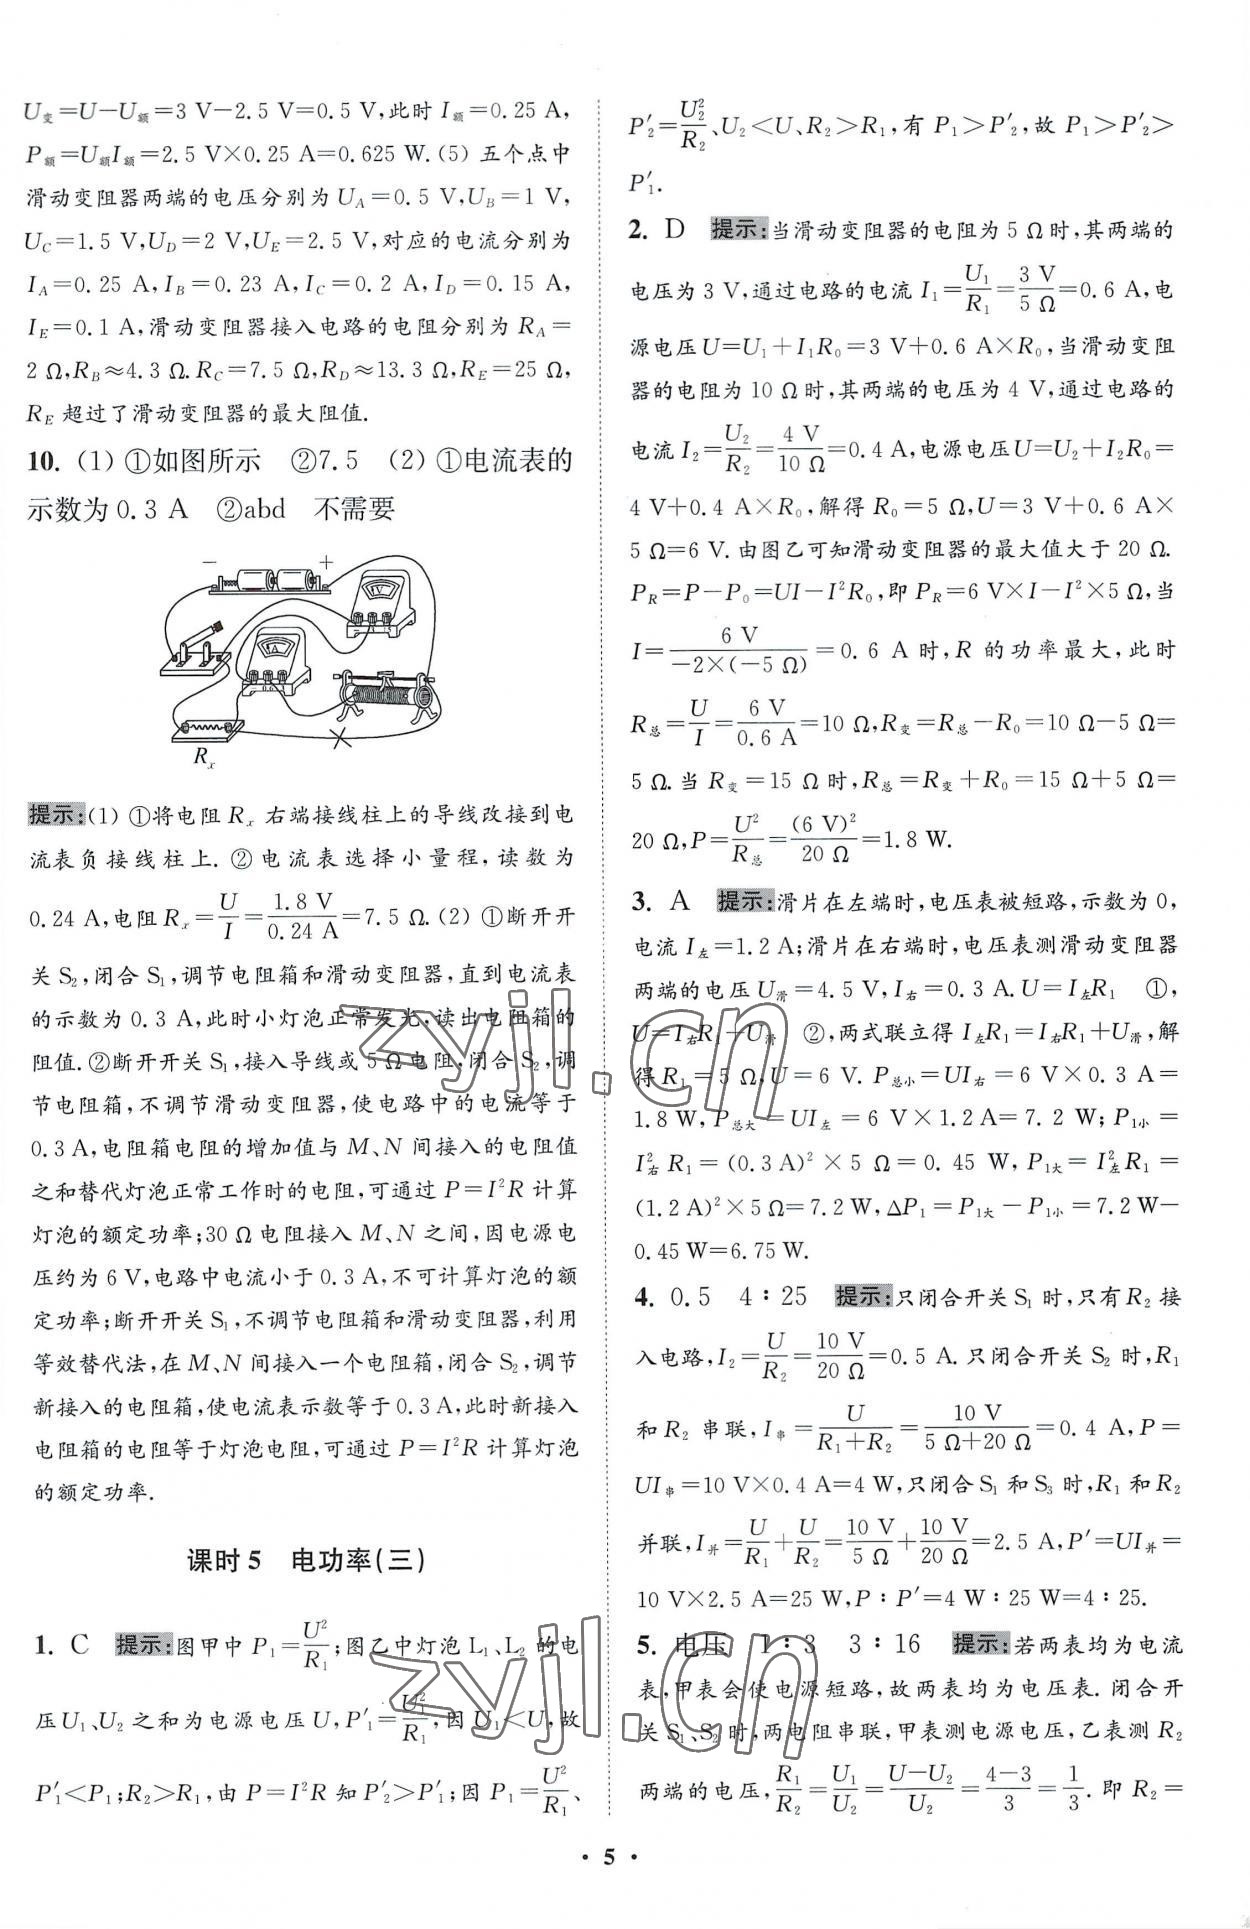 U变=U－U额=3 V－2.5 V=0.5 V,此时 I额=0.25 A,
P额=U额I额=2.5 V×0.25 A=0.625 W.(5) 五个点中
滑动变阻器两端的电压分别为 U_A=0.5 V,U_B=1 V,
U_C=1.5 V,U_D=2 V,U_E=2.5 V,对应的电流分别为
I_A=0.25 A,I_B=0.23 A,I_C=0.2 A,I_D=0.15 A,
I_E=0.1 A,滑动变阻器接入电路的电阻分别为 R_A=
2 Ω,R_B≈4.3 Ω.R_C=7.5 Ω,R_D≈13.3 Ω,R_E=25 Ω,
R_E 超过了滑动变阻器的最大阻值.
10. (1) ①如图所示 ②7.5 (2) ①电流表的
示数为 0.3 A ②abd 不需要
－ ＋
V
A
R_x
提示:(1) ①将电阻 R_x 右端接线柱上的导线改接到电
流表负接线柱上. ② 电流表选择小量程,读数为
0.24 A,电阻 R_x=U/I=1.8 V/0.24 A=7.5 Ω.(2) ①断开开
关 S₂,闭合 S₁,调节电阻箱和滑动变阻器,直到电流表
的示数为 0.3 A,此时小灯泡正常发光,读出电阻箱的
阻值.②断开开关 S₁,接入导线或 5 Ω 电阻,闭合 S₂,调
节电阻箱,不调节滑动变阻器,使电路中的电流等于
0.3 A,电阻箱电阻的增加值与 M、N 间接入的电阻值
之和替代灯泡正常工作时的电阻,可通过 P=I²R 计算
灯泡的额定功率;30 Ω 电阻接入 M、N 之间,因电源电
压约为 6 V,电路中电流小于 0.3 A,不可计算灯泡的额
定功率;断开开关 S₁,不调节电阻箱和滑动变阻器,利用
等效替代法,在 M、N 间接入一个电阻箱,闭合 S₂,调节
新接入的电阻箱,使电流表示数等于 0.3 A,此时新接入
电阻箱的电阻等于灯泡电阻,可通过 P=I²R 计算灯泡
的额定功率.
课时 5 电功率(三)
1. C 提示:图甲中 P₁=U²/R₁;图乙中灯泡 L₁、L₂ 的电
压 U₁、U₂ 之和为电源电压 U,P′₁=U₁²/R₁,因 U₁<U,故
P′₁<P₁;R₂>R₁,由 P=I²R 知 P′₂>P′₁;因 P₁=U²/R₁、
P′₂=U₂²/R₂、U₂<U、R₂>R₁,有 P₁>P′₂,故 P₁>P′₂>
P′₁.
2. D 提示:当滑动变阻器的电阻为 5 Ω 时,其两端的
电压为 3 V,通过电路的电流 I₁=U₁/R₁=3 V/5 Ω=0.6 A,电
源电压 U=U₁+I₁R₀=3 V+0.6 A×R₀,当滑动变阻
器的电阻为 10 Ω 时,其两端的电压为 4 V,通过电路的
电流 I₂=U₂/R₂=4 V/10 Ω=0.4 A,电源电压 U=U₂+I₂R₀=
4 V+0.4 A×R₀,解得 R₀=5 Ω,U=3 V+0.6 A×
5 Ω=6 V.由图乙可知滑动变阻器的最大值大于 20 Ω.
P_R=P－P₀=UI－I²R₀,即 P_R=6 V×I－I²×5 Ω,当
I=6 V/－2×(－5 Ω)=0.6 A 时,R 的功率最大,此时
R总=U/I=6 V/0.6 A=10 Ω,R变=R总－R₀=10 Ω－5 Ω=
5 Ω.当 R变=15 Ω 时,R总=R变+R₀=15 Ω+5 Ω=
20 Ω,P=U²/R总=(6 V)²/20 Ω=1.8 W.
3. A 提示:滑片在左端时,电压表被短路,示数为 0,
电流 I左=1.2 A;滑片在右端时,电压表测滑动变阻器
两端的电压 U滑=4.5 V,I右=0.3 A.U=I左R₁ ①,
U=I右R₁+U滑 ②,两式联立得 I左R₁=I右R₁+U滑,解
得 R₁=5 Ω,U=6 V. P总小=UI右=6 V×0.3 A=
1.8 W,P总大=UI左=6 V×1.2 A=7.2 W;P₁小=
I右²R₁=(0.3 A)²×5 Ω=0.45 W,P₁大=I左²R₁=
(1.2 A)²×5 Ω=7.2 W,ΔP₁=P₁大－P₁小=7.2 W－
0.45 W=6.75 W.
4. 0.5 4∶25 提示:只闭合开关 S₁ 时,只有 R₂ 接
入电路,I₂=U/R₂=10 V/20 Ω=0.5 A.只闭合开关 S₂ 时,R₁
和 R₂ 串联,I串=U/R₁+R₂=10 V/5 Ω+20 Ω=0.4 A,P=
UI串=10 V×0.4 A=4 W,只闭合 S₁ 和 S₃ 时,R₁ 和 R₂
并联,I并=U/R₁+U/R₂=10 V/5 Ω+10 V/20 Ω=2.5 A,P′=UI并=
10 V×2.5 A=25 W,P∶P′=4 W∶25 W=4∶25.
5. 电压 1∶3 3∶16 提示:若两表均为电流
表,甲表会使电源短路,故两表均为电压表.闭合开
关 S₁、S₂ 时,两电阻串联,甲表测电源电压,乙表测 R₂
两端的电压,R₁/R₂=U₁/U₂=U－U₂/U₂=4－3/3=1/3.即 R₂=
· 5 ·
zyjl.cn
zyjl.cn